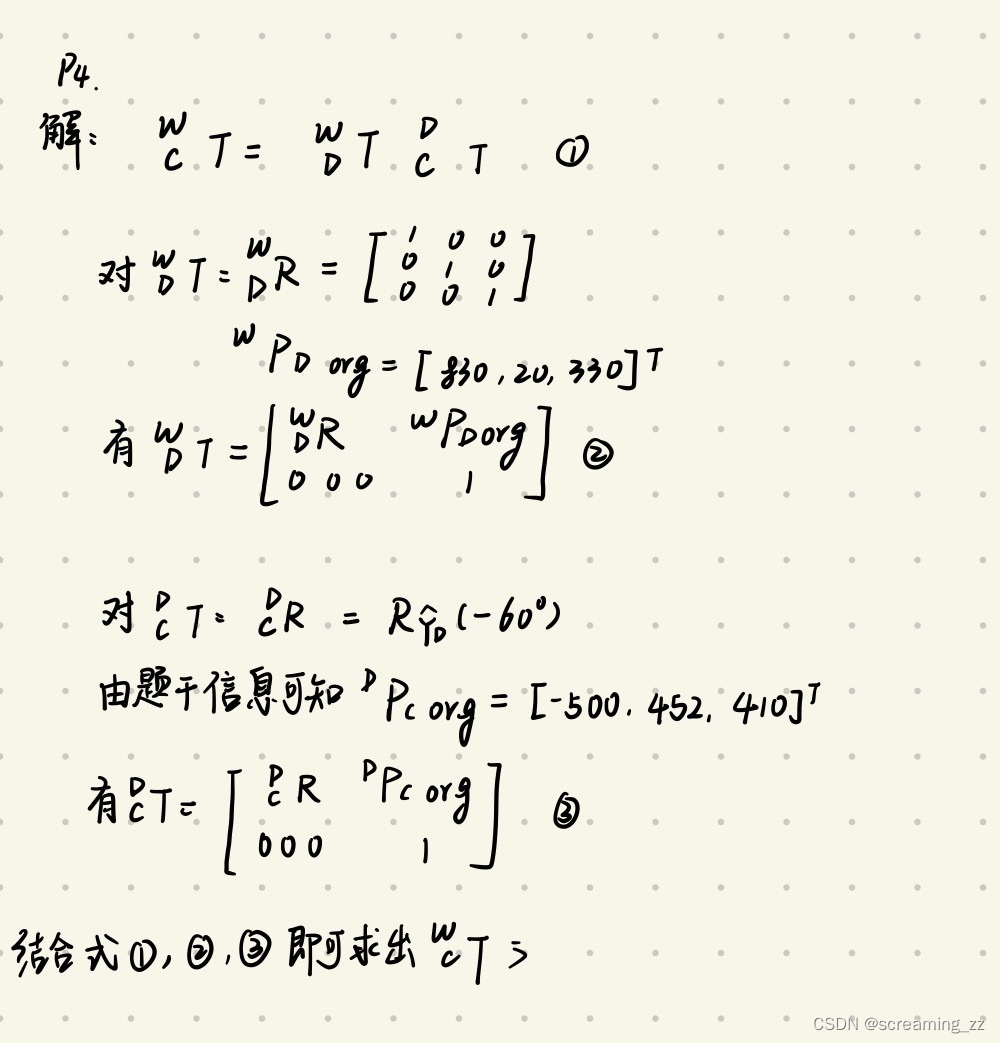 P4.
解: ᵂ_C T = ᵂ_D T ᴰ_C T ①
对 ᵂ_D T: ᵂ_D R = [1 0 0
0 1 0
0 0 1]
ᵂP_D org = [830, 20, 330]ᵀ
有 ᵂ_D T = [ᵂ_D R ᵂP_D org
0 0 0 1] ②
对 ᴰ_C T: ᴰ_C R = R_Ŷ_D (-60°)
由题干信息可知 ᴰP_C org = [-500, 452, 410]ᵀ
有 ᴰ_C T = [ᴰ_C R ᴰP_C org
0 0 0 1] ③
结合式①,②,③即可求出 ᵂ_C T
CSDN @screaming_zz